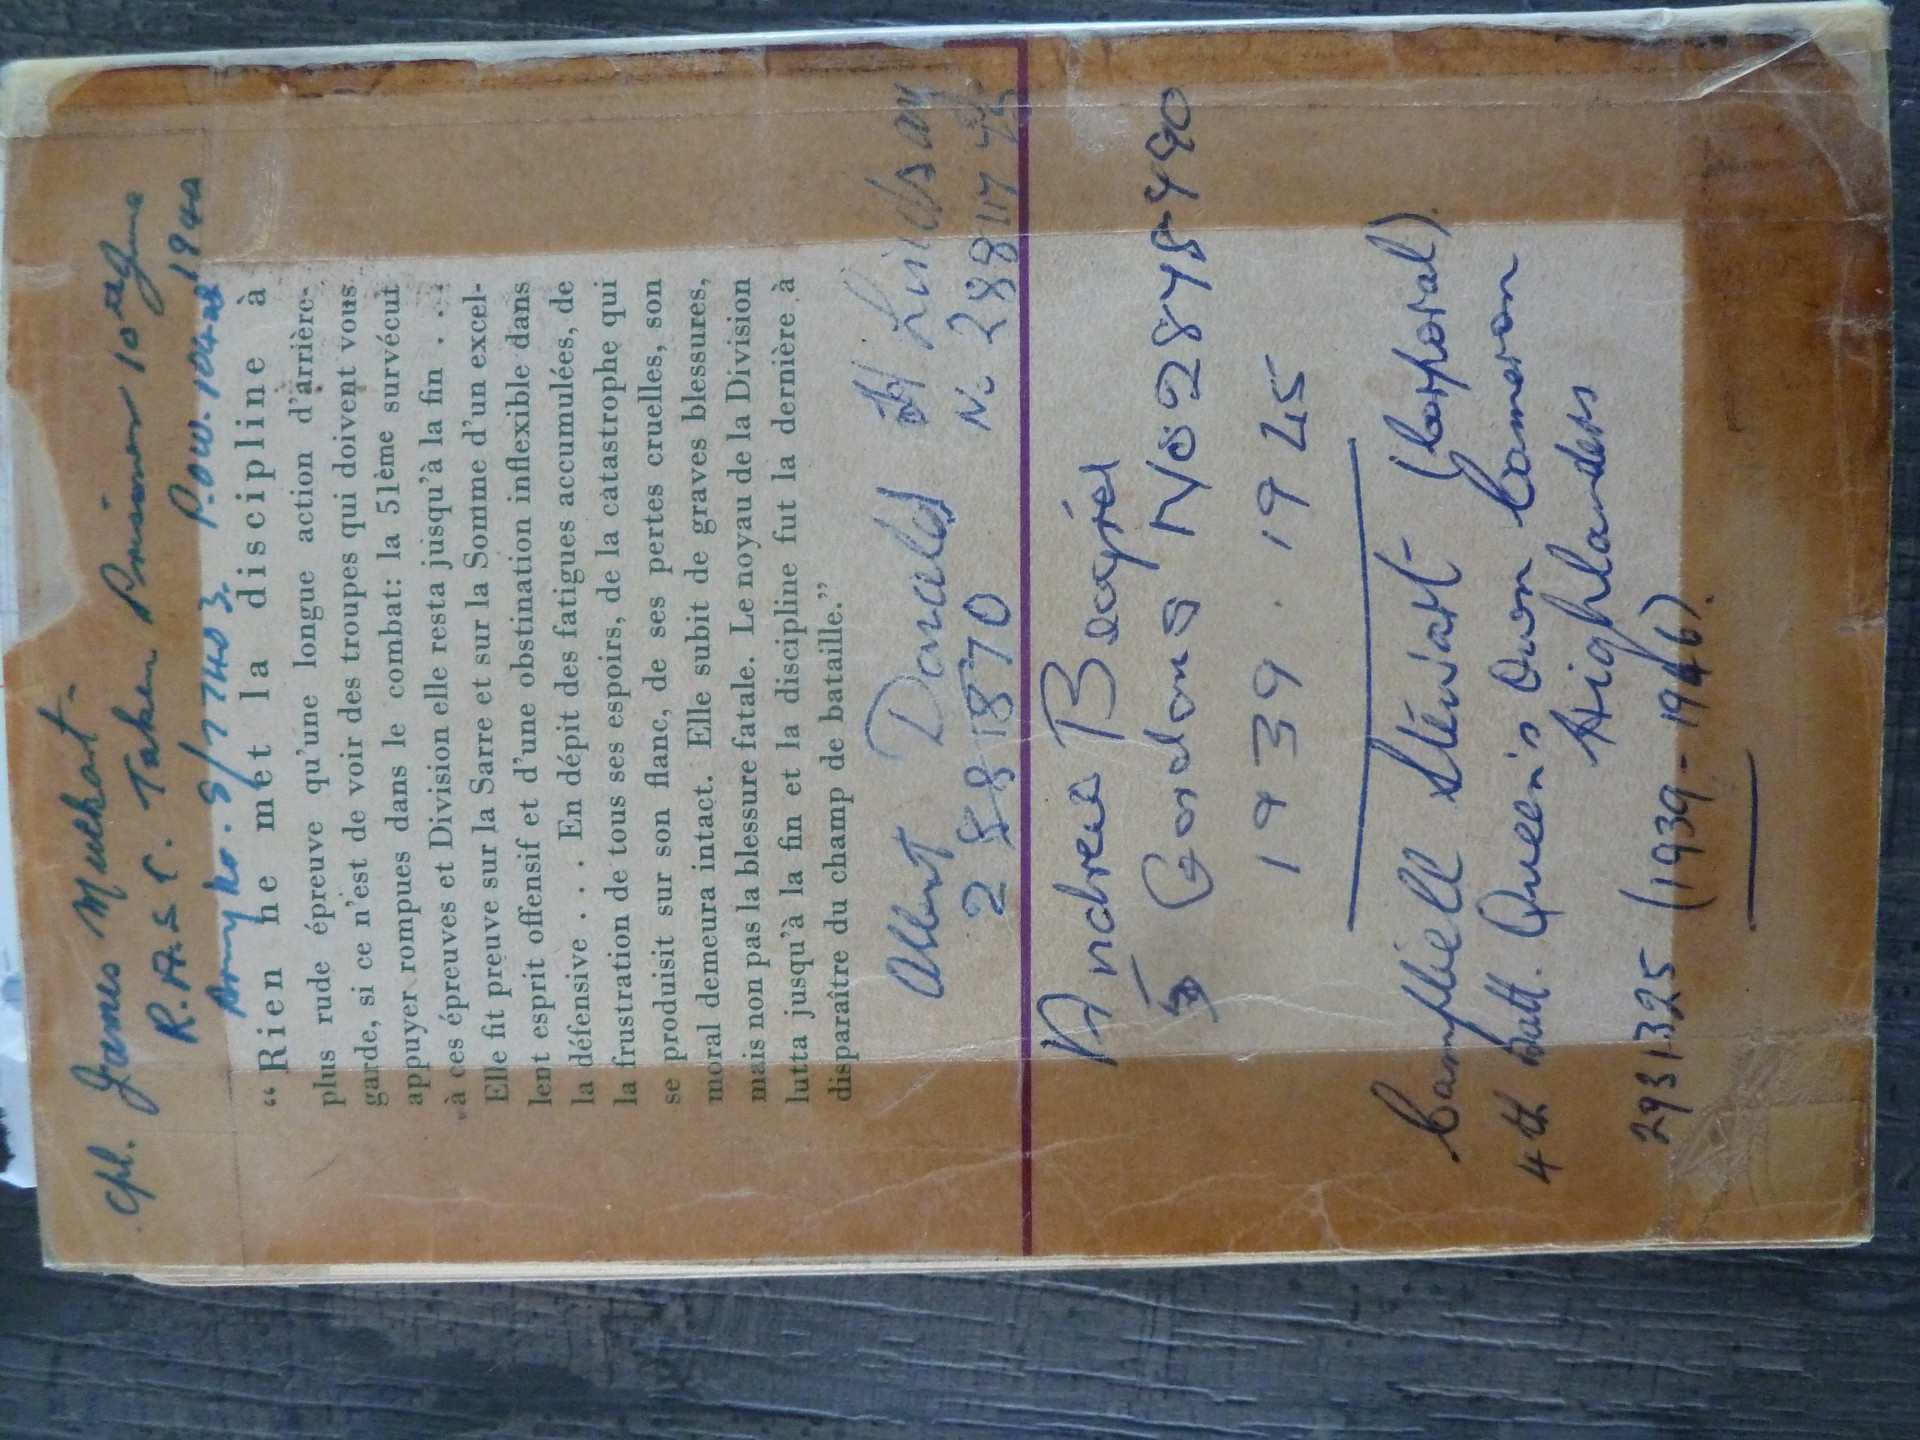 Cpl. James
R.A.S.C. Taken Prisoner 10th June
Army No. S/77403. P.O.W. 1940
“Rien ne met la discipline à
plus rude épreuve qu'une longue action d'arrière-
garde, si ce n'est de voir des troupes qui doivent vous
appuyer rompues dans le combat: la 51ème survécut
à ces épreuves et Division elle resta jusqu'à la fin . . .
Elle fit preuve sur la Sarre et sur la Somme d'un excel-
lent esprit offensif et d'une obstination inflexible dans
la défensive . . . En dépit des fatigues accumulées, de
la frustration de tous ses espoirs, de la catastrophe qui
se produisit sur son flanc, de ses pertes cruelles, son
moral demeura intact. Elle subit de graves blessures,
mais non pas la blessure fatale. Le noyau de la Division
lutta jusqu'à la fin et la discipline fut la dernière à
disparaître du champ de bataille.”
Albert Donald
2881870
Lindsay
No
Andrew
5 Gordons No 2875490
1939 . 1945
Campbell Stewart (Corporal).
4th Batt. Queen's Own Cameron
Highlanders
2931325 (1939-1946).